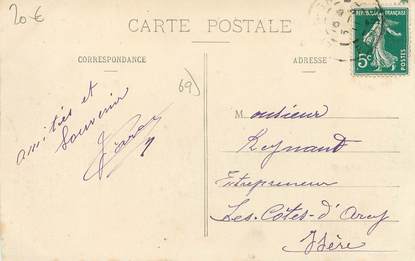 20€
CARTE POSTALE
CORRESPONDANCE
ADRESSE
REPUBLIQUE FRANÇAISE
5c
POSTES
69)
amitiés et
Souvenir
Monsieur
Reynaud
Entrepreneur
Les-Côtes-d'Arey
Isère